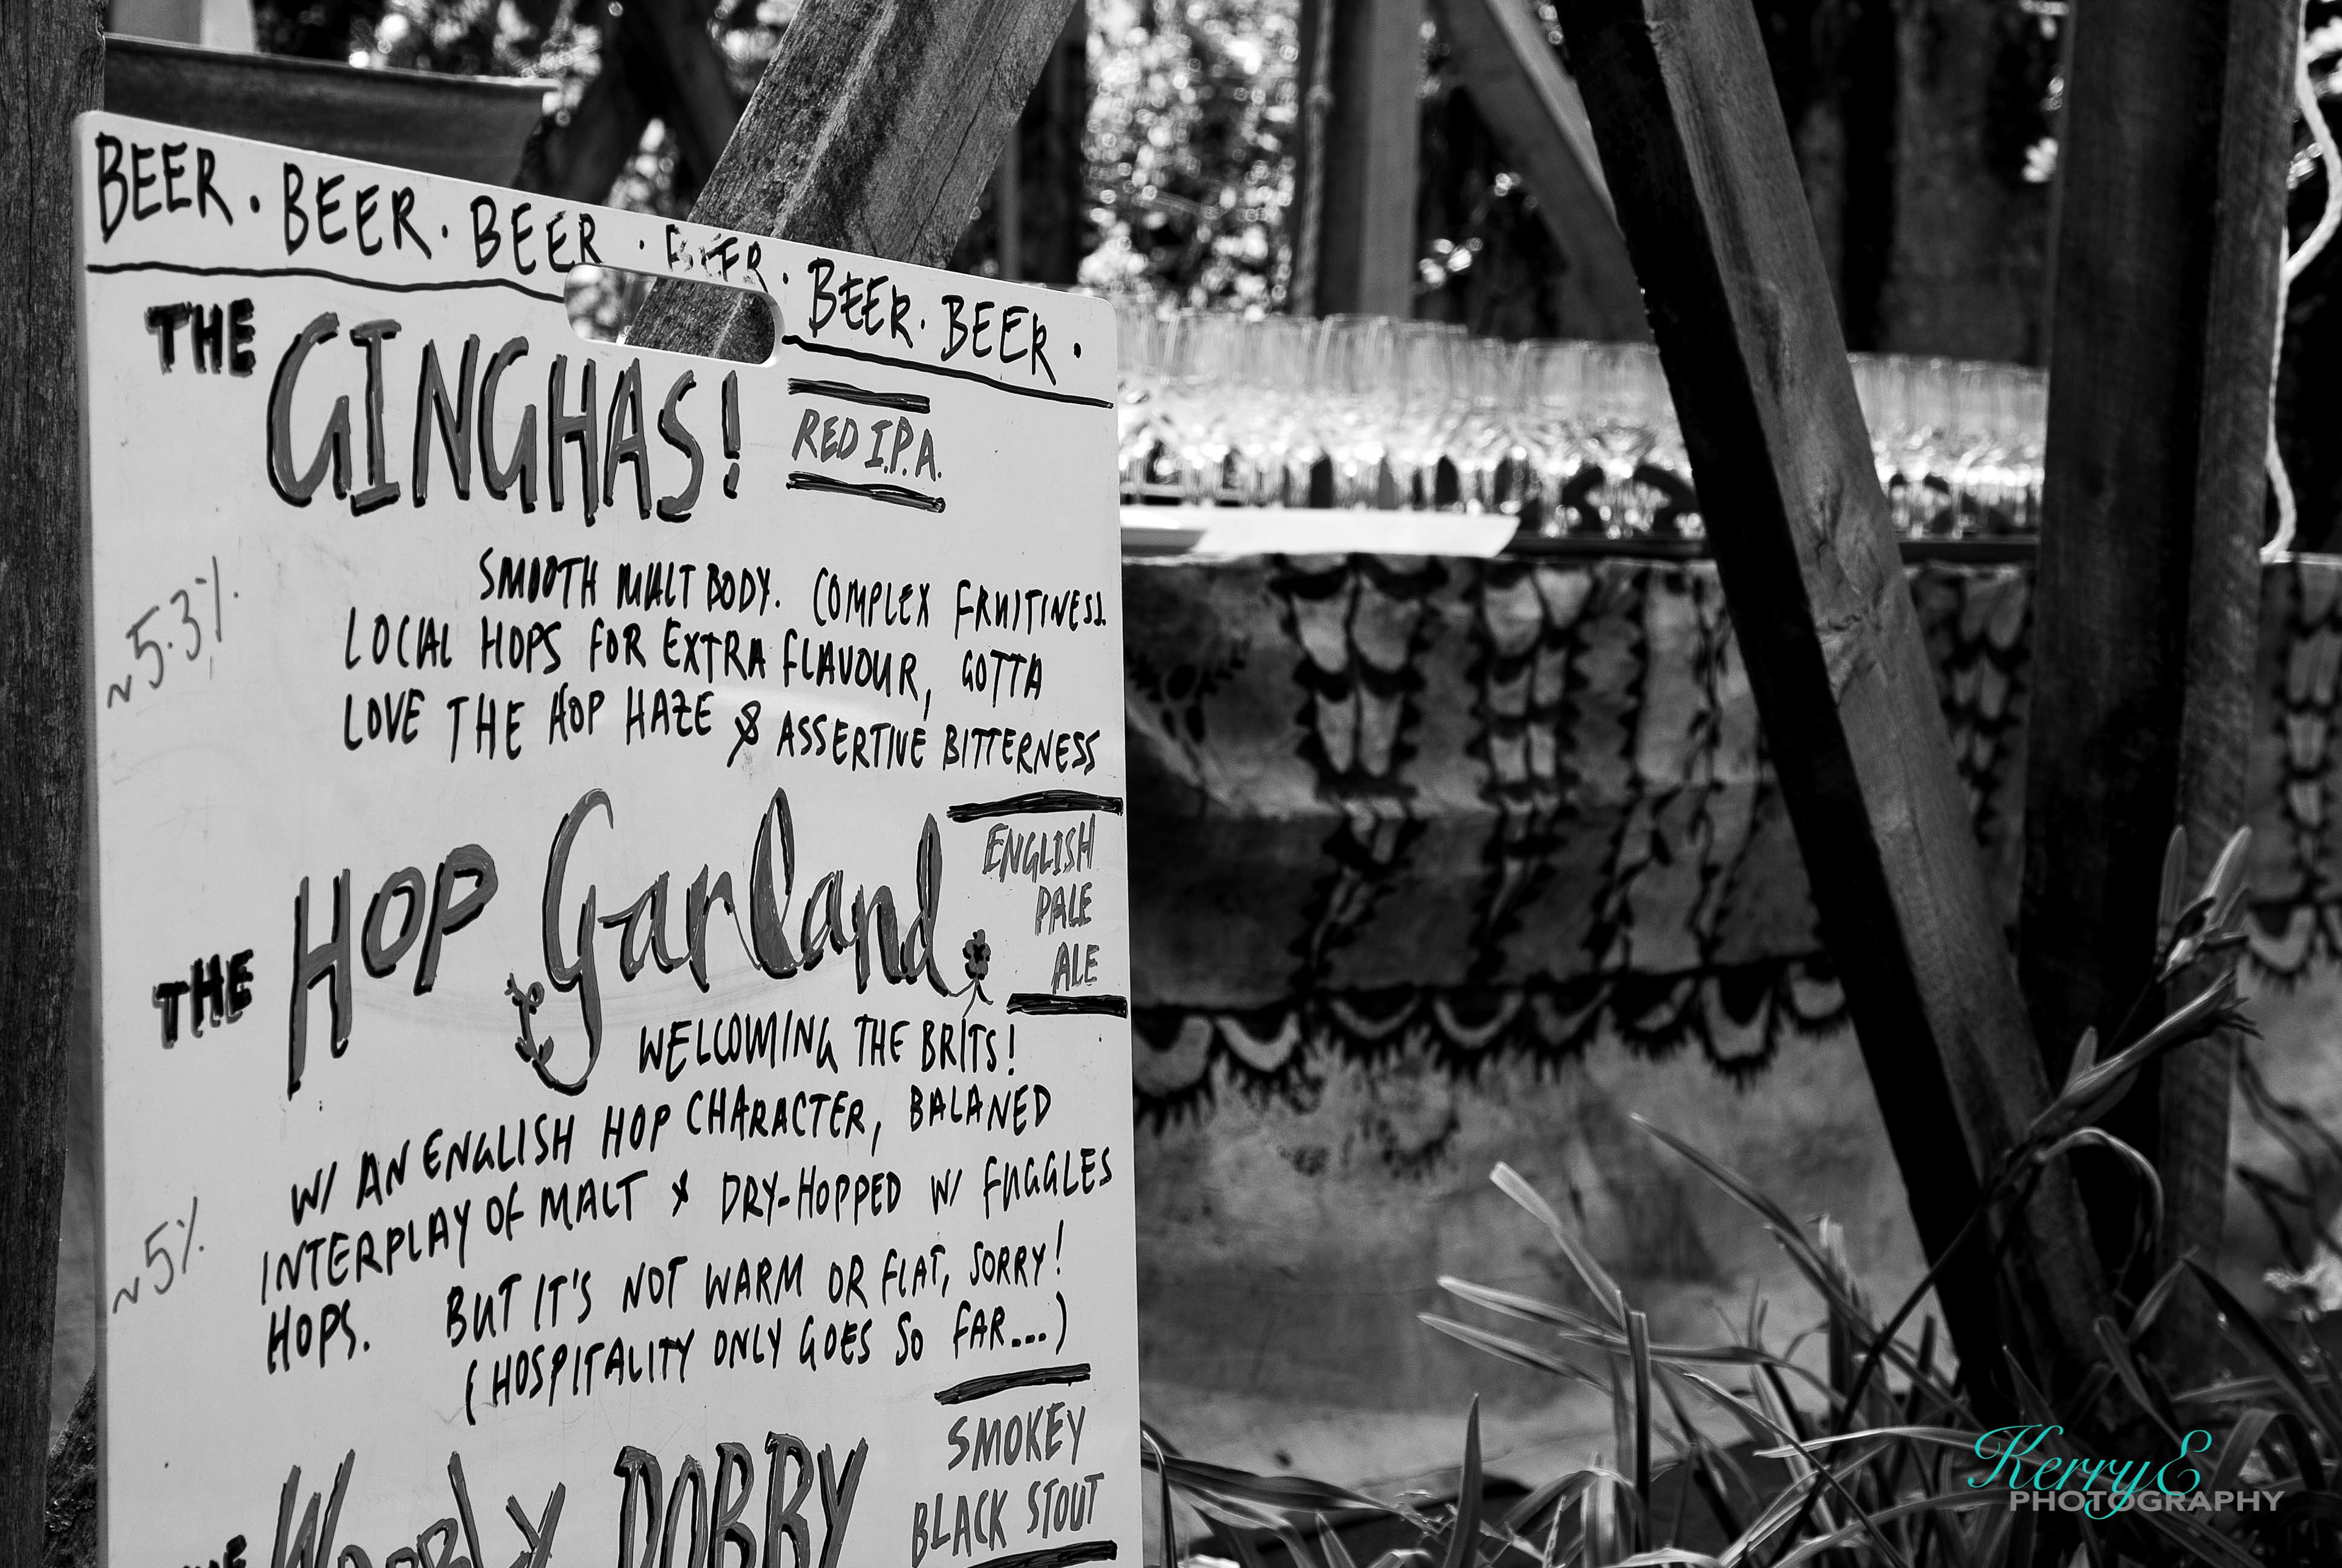 BEER. BEER. BEER. BEER. BEER. BEER.
THE GINGHAS!
RED I.P.A.
~5.3%
SMOOTH MALT BODY. COMPLEX FRUITINESS.
LOCAL HOPS FOR EXTRA FLAVOUR, GOTTA
LOVE THE HOP HAZE & ASSERTIVE BITTERNESS
THE HOP Garland
ENGLISH
PALE
ALE
WELCOMING THE BRITS!
W/ AN ENGLISH HOP CHARACTER, BALANED
INTERPLAY OF MALT & DRY-HOPPED W/ FUGGLES
HOPS. BUT IT'S NOT WARM OR FLAT, SORRY!
(HOSPITALITY ONLY GOES SO FAR...)
~5%
SMOKEY
BLACK STOUT
DOBBY
KerryE
PHOTOGRAPHY